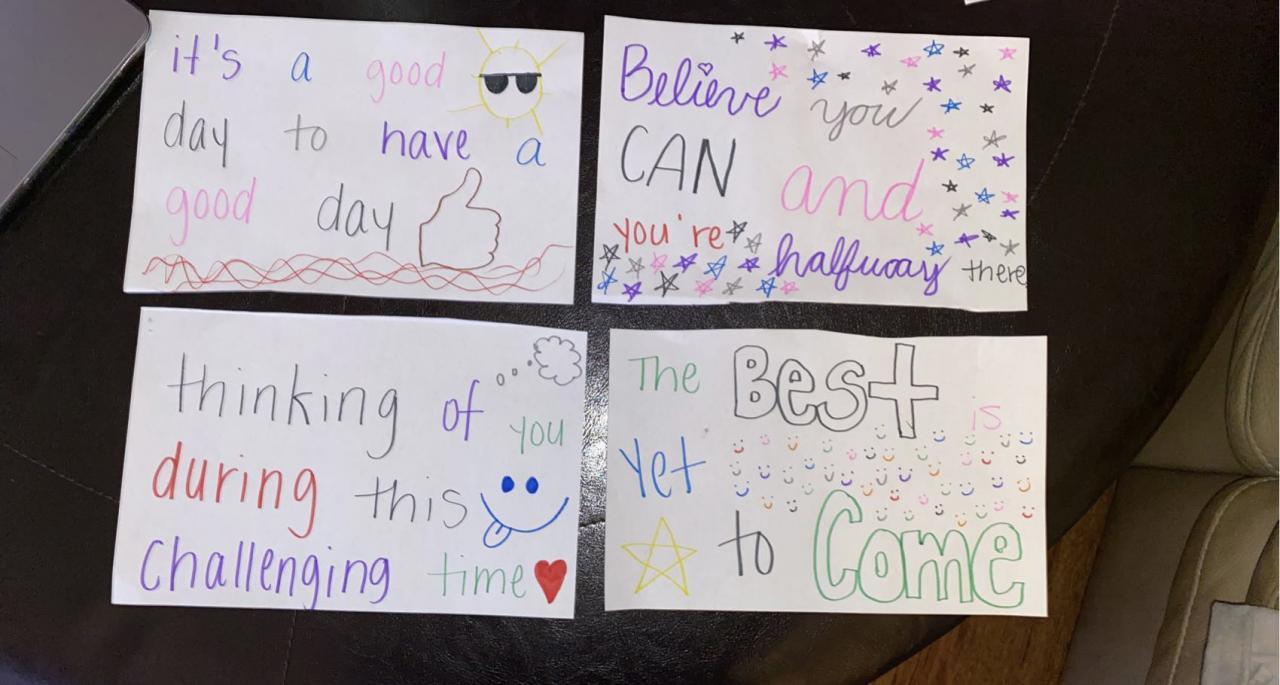 it's a good
day to have a
good day
Believe you
CAN and
you're halfway there
thinking of you
during this
challenging time
The Best is
Yet
to Come